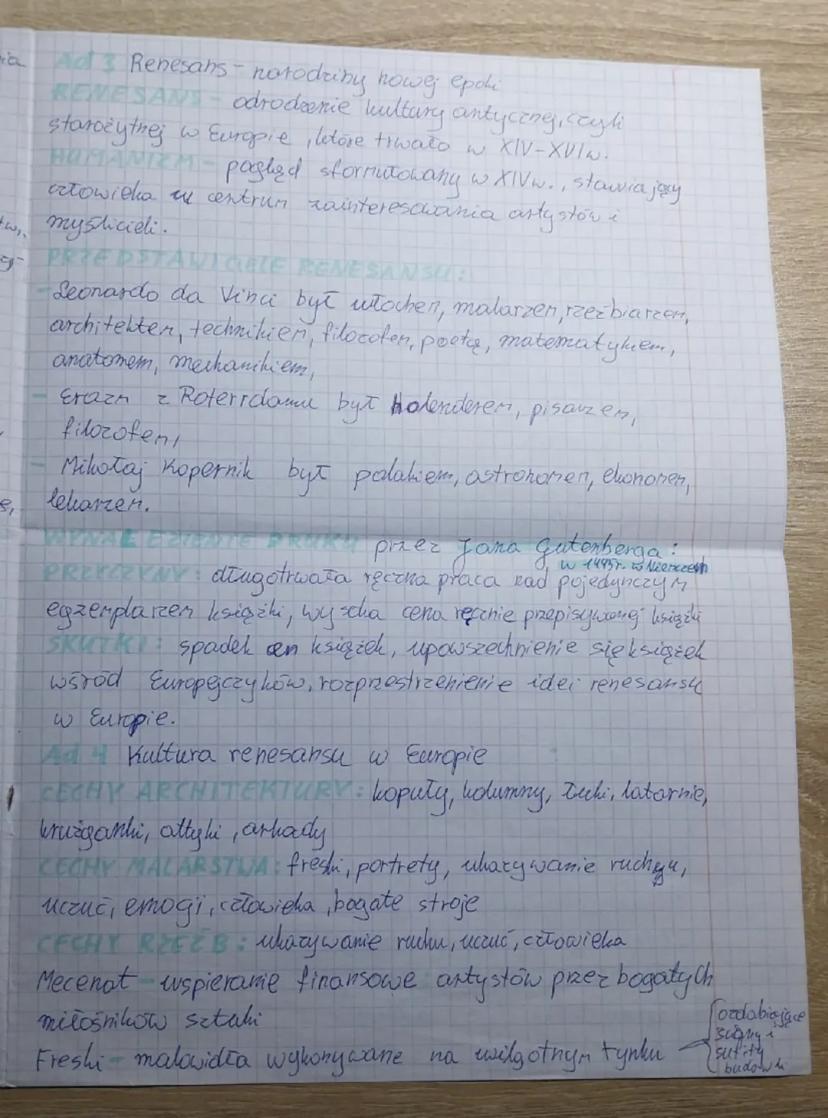 Ad 3 Renesans - narodziny nowej epoki
RENESANS - odrodzenie kultury antycznej, czyli
starożytnej w Europie, które trwało w XIV-XVIw.
HUMANIZM - pogląd sformułowany w XIVw., stawiający
człowieka w centrum zainteresowania artystów i
myślicieli.
PRZEDSTAWICIELE RENESANSU:
- Leonardo da Vinci był włochem, malarzem, rzeźbiarzem,
architektem, technikiem, filozofem, poetą, matematykiem,
anatomem, mechanikiem,
- Erazm z Roterrdamu był holenderem, pisarzem,
filozofem,
- Mikołaj Kopernik był polakiem, astronomem, ekonomem,
lekarzem.
WYNALEZIENIE DRUKU przez Jana Gutenberga:
w 1445r. w Niemczech
PRZYCZYNY: długotrwała ręczna praca nad pojedynczym
egzemplarzem książki, wysoka cena ręcznie przepisywanej książki
SKUTKI: spadek cen książek, upowszechnienie się książek
wśród Europejczyków, rozprzestrzenienie idei renesansu
w Europie.
Ad 4 Kultura renesansu w Europie
CECHY ARCHITEKTURY: kopuły, kolumny, łuki, latarnie,
krużganki, attyki, arkady
CECHY MALARSTWA: freski, portrety, ukazywanie ruchu,
uczuć, emocji, człowieka, bogate stroje
CECHY RZEŹB: ukazywanie ruchu, uczuć, człowieka
Mecenat - wspieranie finansowe artystów przez bogatych
miłośników sztuki
Freski - malowidła wykonywane na wilgotnym tynku
ozdabiające
ściany i
sufity
budowli